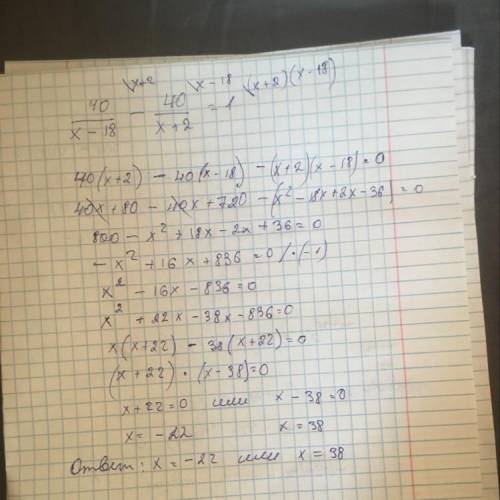 \x+2 \x-18 \(x+2)(x-18)
40/(x-18) - 40/(x+2) = 1
40(x+2) - 40(x-18) - (x+2)(x-18)=0
40x+80 - 40x+720 - (x²-18x+2x-36)=0
800 - x²+18x-2x+36=0
-x²+16x+836=0 /·(-1)
x²-16x-836=0
x²+22x-38x-836=0
x(x+22)-38(x+22)=0
(x+22)·(x-38)=0
x+22=0 или x-38=0
x=-22 x=38
Ответ: x=-22 или x=38